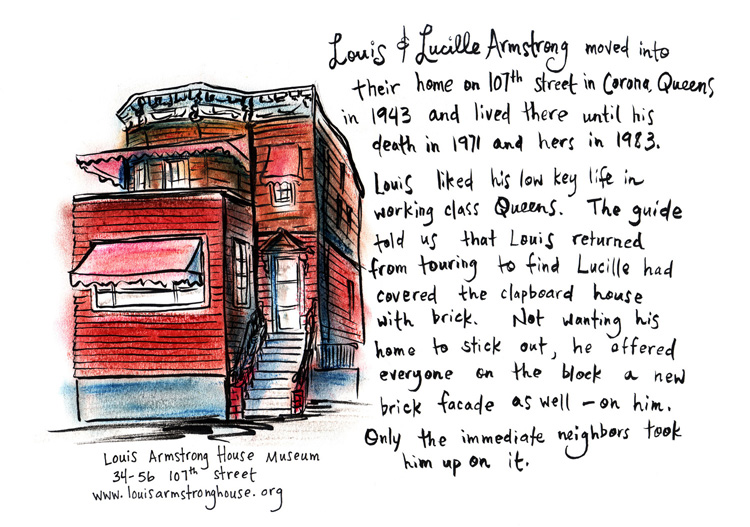 Louis & Lucille Armstrong moved into
their home on 107th street in Corona, Queens
in 1943 and lived there until his
death in 1971 and hers in 1983.
Louis liked his low key life in
working class Queens. The guide
told us that Louis returned
from touring to find Lucille had
covered the clapboard house
with brick. Not wanting his
home to stick out, he offered
everyone on the block a new
brick facade as well - on him.
Only the immediate neighbors took
him up on it.
Louis Armstrong House Museum
34-56 107th street
www.louisarmstronghouse.org